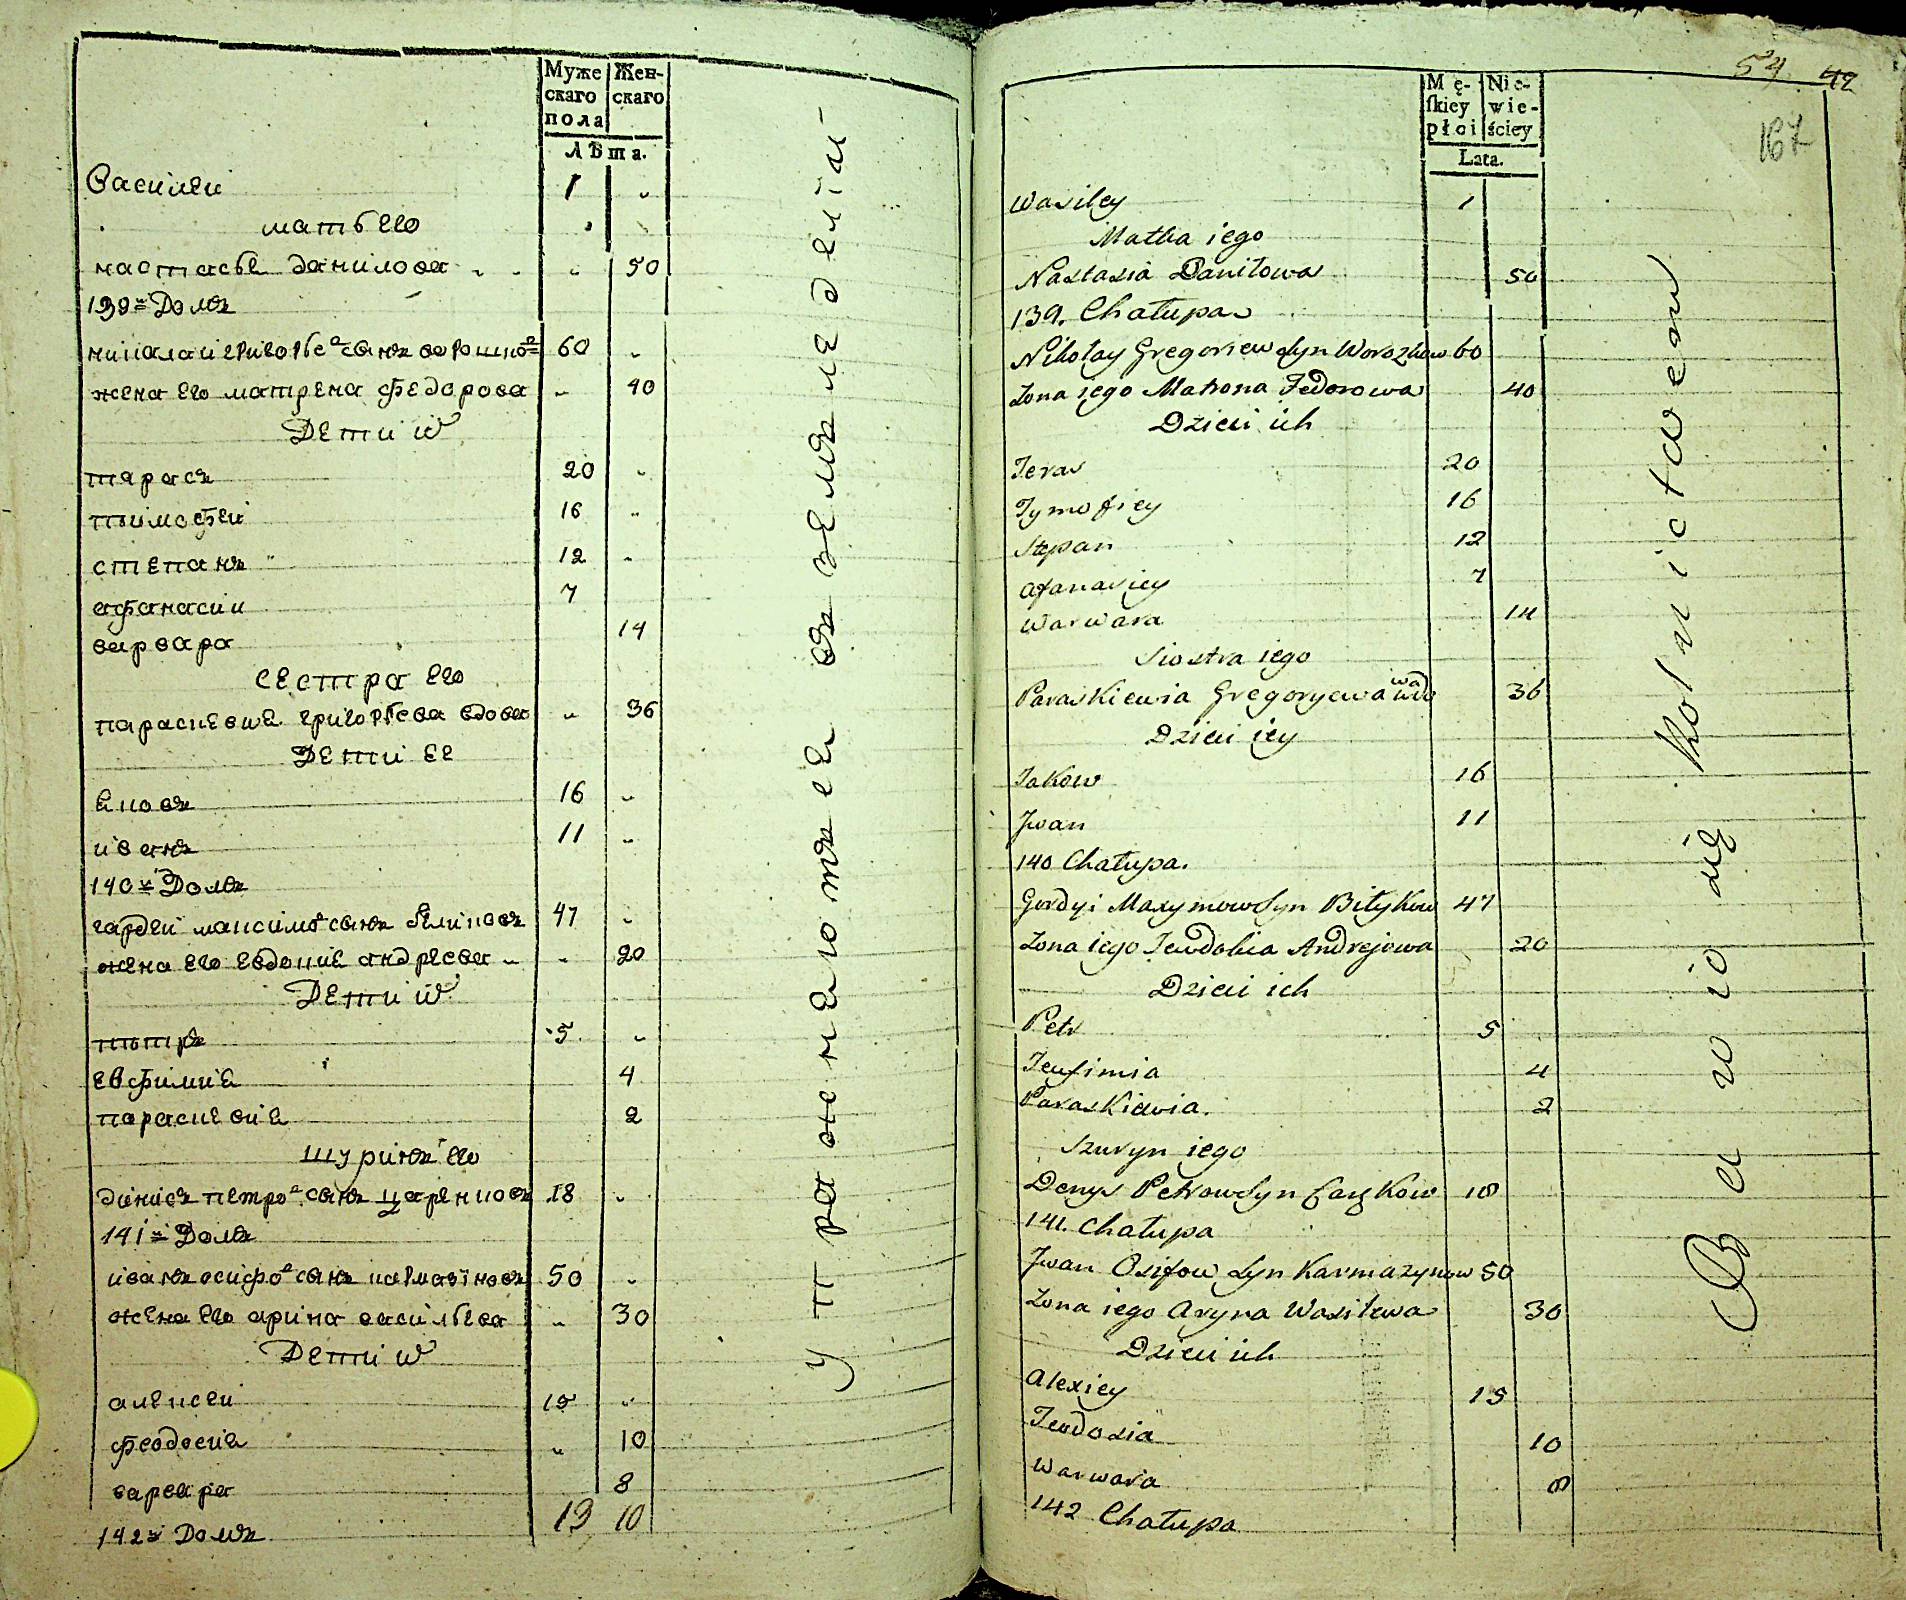 Муже Жен-
скаго скаго
пола
Лѣта.
Василей 1 „
мать его
настасья данилова „ 50
139й Домъ
николай григорье᷃в сынъ ворошко᷃в 60 „
жена его матрена федорова „ 40
Дети их
тарасъ 20 „
тимофей 16 „
степанъ 12 „
афанасий 7
варвара 14
сестра его
парасковия григорьева вдова „ 36
Дети ее
яковъ 16 „
иванъ 11 „
140й Домъ
гардей максимо᷃в сынъ биликовъ 47 „
жена его евдокия андреева „ 20
Дети их
петръ 5 „
евфимия 4
парасковия 2
шуринъ его
денисъ петро᷃в сынъ 18 „
141й Домъ
иванъ осифо᷃в сынъ кармазиновъ 50 „
жена его арина васильева „ 30
Дети их
алексей 15 „
феодосия „ 10
варвара 8
13 10
142й Домъ
упражняютъся въ земъледелїи
54 42
167
Mę- Nie-
skiey wie-
płci ściey
Lata.
Wasiley 1
Matka iego
Nastasia Daniłowa 50
139. Chałupa
Nikołay Gregoriew syn Woroszkow 60
Zona iego Matrona Fedorowa 40
Dzieci ich
Teras 20
Tymofiey 16
Stepan 12
Afanasiey 7
Warwara 14
Siostra iego
Paraskiewia Gregoryewa wdowa 36
Dzieci iey
Jakow 16
Jwan 11
140 Chałupa.
Gordyi Maxymow syn Biłykow 47
Zona iego Jewdokia Andrejowa 20
Dzieci ich
Petr 5
Jeufimia 4
Paraskiewia. 2
Szuryn iego
Denys Petrow syn 18
141. Chałupa
Jwan Osifow syn Karmazynow 50
Zona iego Aryna Wasilewa 30
Dzieci ich
Alexiey 15
Teodosia 10
Warwara 8
142 Chałupa
Bawią się Rolnictwem